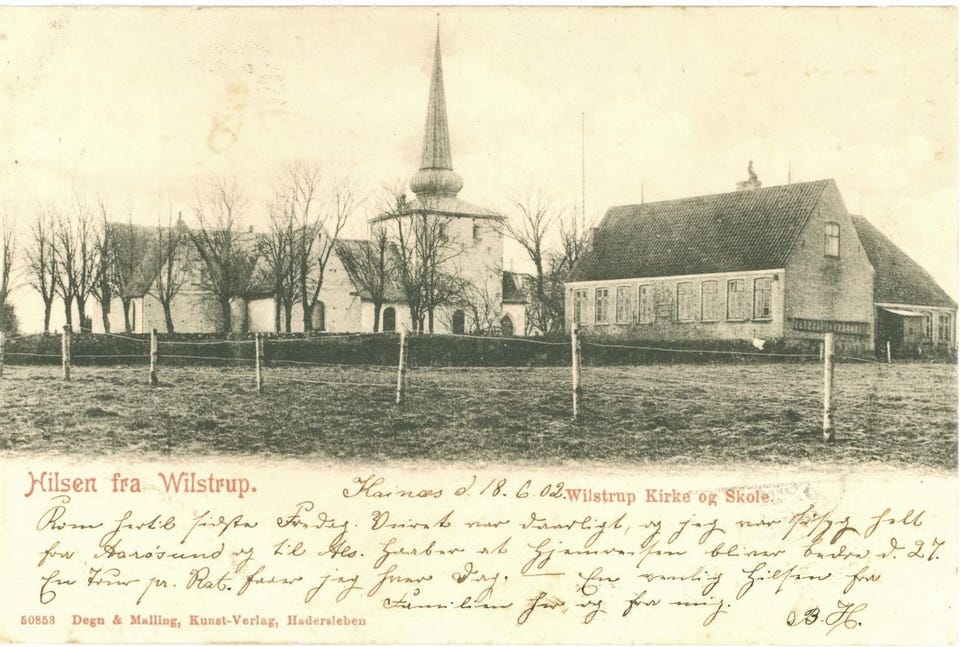 Hilsen fra Wilstrup.
Kainæs d. 18. 6. 02.
Wilstrup Kirke og Skole.
Kom hertil sidste Fredag. Veiret var daarligt, og jeg var søsyg helt
fra Aarøsund og til Als. Haaber at Hjemreisen bliver bedre d. 27.
En Tour pr. Rat. faaer jeg hver Dag. — En venlig Hilsen fra
Familien her, og fra mig.
B. H.
50853 Degn & Malling, Kunst-Verlag, Hadersleben